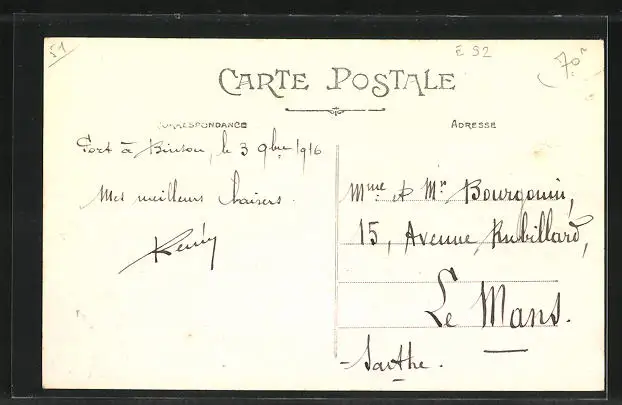 51
E 92
70
CARTE POSTALE
CORRESPONDANCE
ADRESSE
Port à Binson, le 3 9bre 1916
Mes meilleurs baisers.
Remy
Mme et Mr Bourgouin,
15, Avenue Rubillard,
Le Mans.
Sarthe.